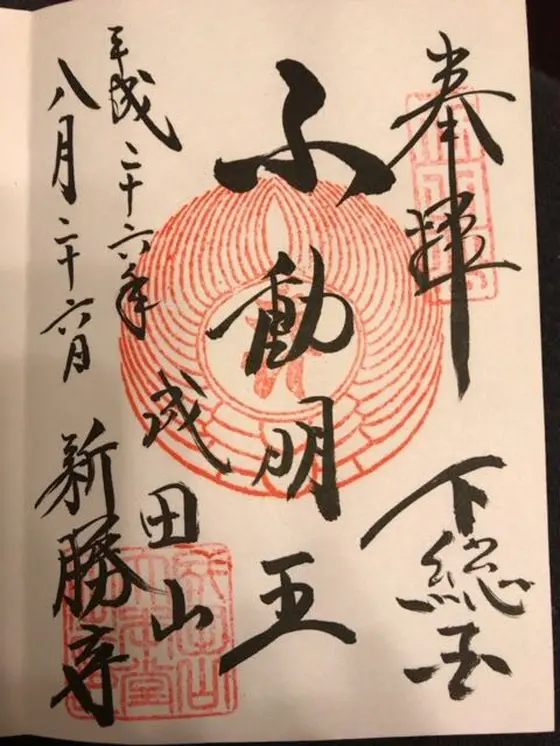 奉拝
下総国
不動明王
平成二十六年
八月二十六日
成田山
新勝寺